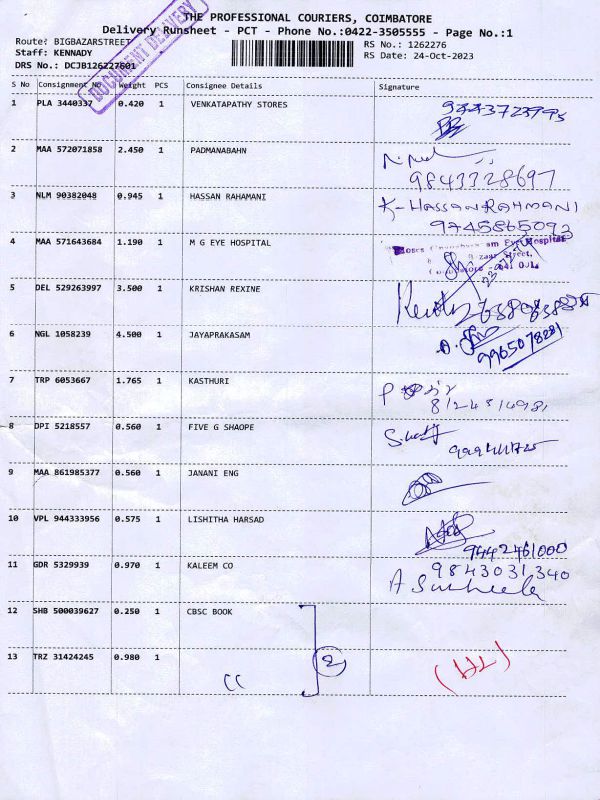 THE PROFESSIONAL COURIERS, COIMBATORE
Delivery Runsheet - PCT - Phone No.:0422-3505555 - Page No.:1
Route: BIGBAZARSTREET
RS No.: 1262276
Staff: KENNADY
RS Date: 24-Oct-2023
DRS No.: DCJB126227601
DOCUMENT DELIVERY
S No Consignment No Weight PCS Consignee Details Signature
1 PLA 3440337 0.420 1 VENKATAPATHY STORES
2 MAA 572071858 2.450 1 PADMANABAHN
9843328697
3 NLM 90382048 0.945 1 HASSAN RAHAMANI K-HASSANRAHMANI
9745865093
4 MAA 571643684 1.190 1 M G EYE HOSPITAL Eye Hospital
Street,
5 DEL 529263997 3.500 1 KRISHAN REXINE
6 NGL 1058239 4.500 1 JAYAPRAKASAM
9965078281
7 TRP 6053667 1.765 1 KASTHURI
8 DPI 5218557 0.560 1 FIVE G SHAOPE
9 MAA 861985377 0.560 1 JANANI ENG
10 VPL 944333956 0.575 1 LISHITHA HARSAD
9442461000
11 GDR 5329939 0.970 1 KALEEM CO 9843031340
A Susheela
12 SHB 500039627 0.250 1 CBSC BOOK
2
13 TRZ 31424245 0.980 1